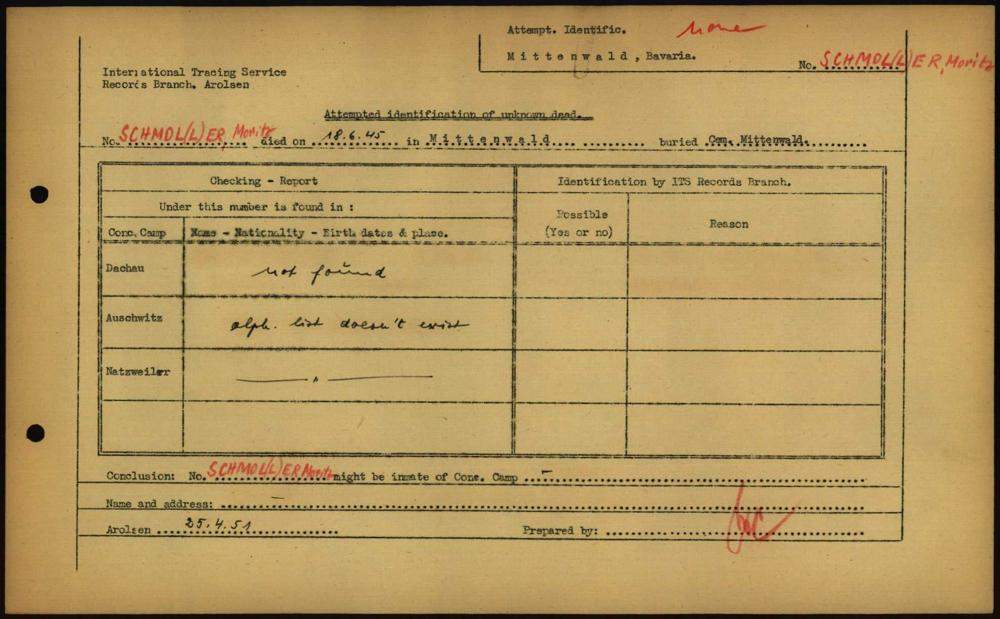 Attempt. Identific. None
Mittenwald, Bavaria.
No. SCHMOL(L)ER, Moritz
International Tracing Service
Records Branch, Arolsen
Attempted identification of unknown dead.
No. SCHMOL(L)ER, Moritz died on 18.6.45 in Mittenwald buried Cem. Mittenwald.
Checking - Report
Identification by ITS Records Branch.
Under this number is found in :
Possible
(Yes or no)
Reason
Conc. Camp
Name - Nationality - Birth dates & place.
Dachau
not found
Auschwitz
alph. list doesn't exist
Natzweiler
— " —
Conclusion: No. SCHMOL(L)ER, Moritz might be inmate of Conc. Camp –
Name and address: –
Arolsen 25.4.51
Prepared by: